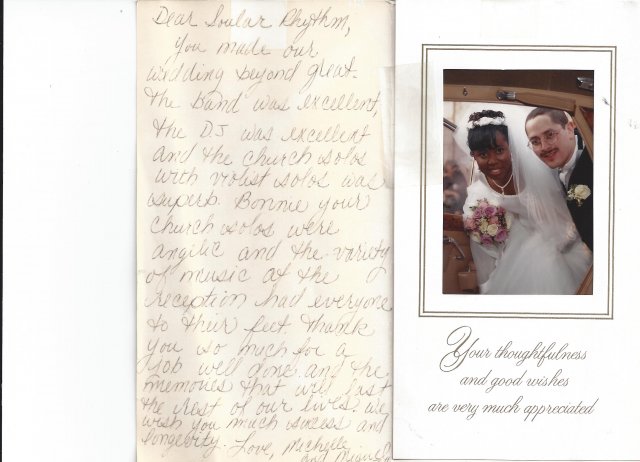 Dear Soular Rhythm,
you made our
wedding beyond great.
The band was excellent,
the DJ was excellent
and the church solos
with violist solos was
superb. Bonnie your
church solos were
angelic and the variety
of music at the
reception had everyone
to their feet thank
you so much for a
job well done and the
memories that will last
the rest of our lives. We
wish you much success and
longevity. Love, Michelle
and Miguel
Your thoughtfulness
and good wishes
are very much appreciated